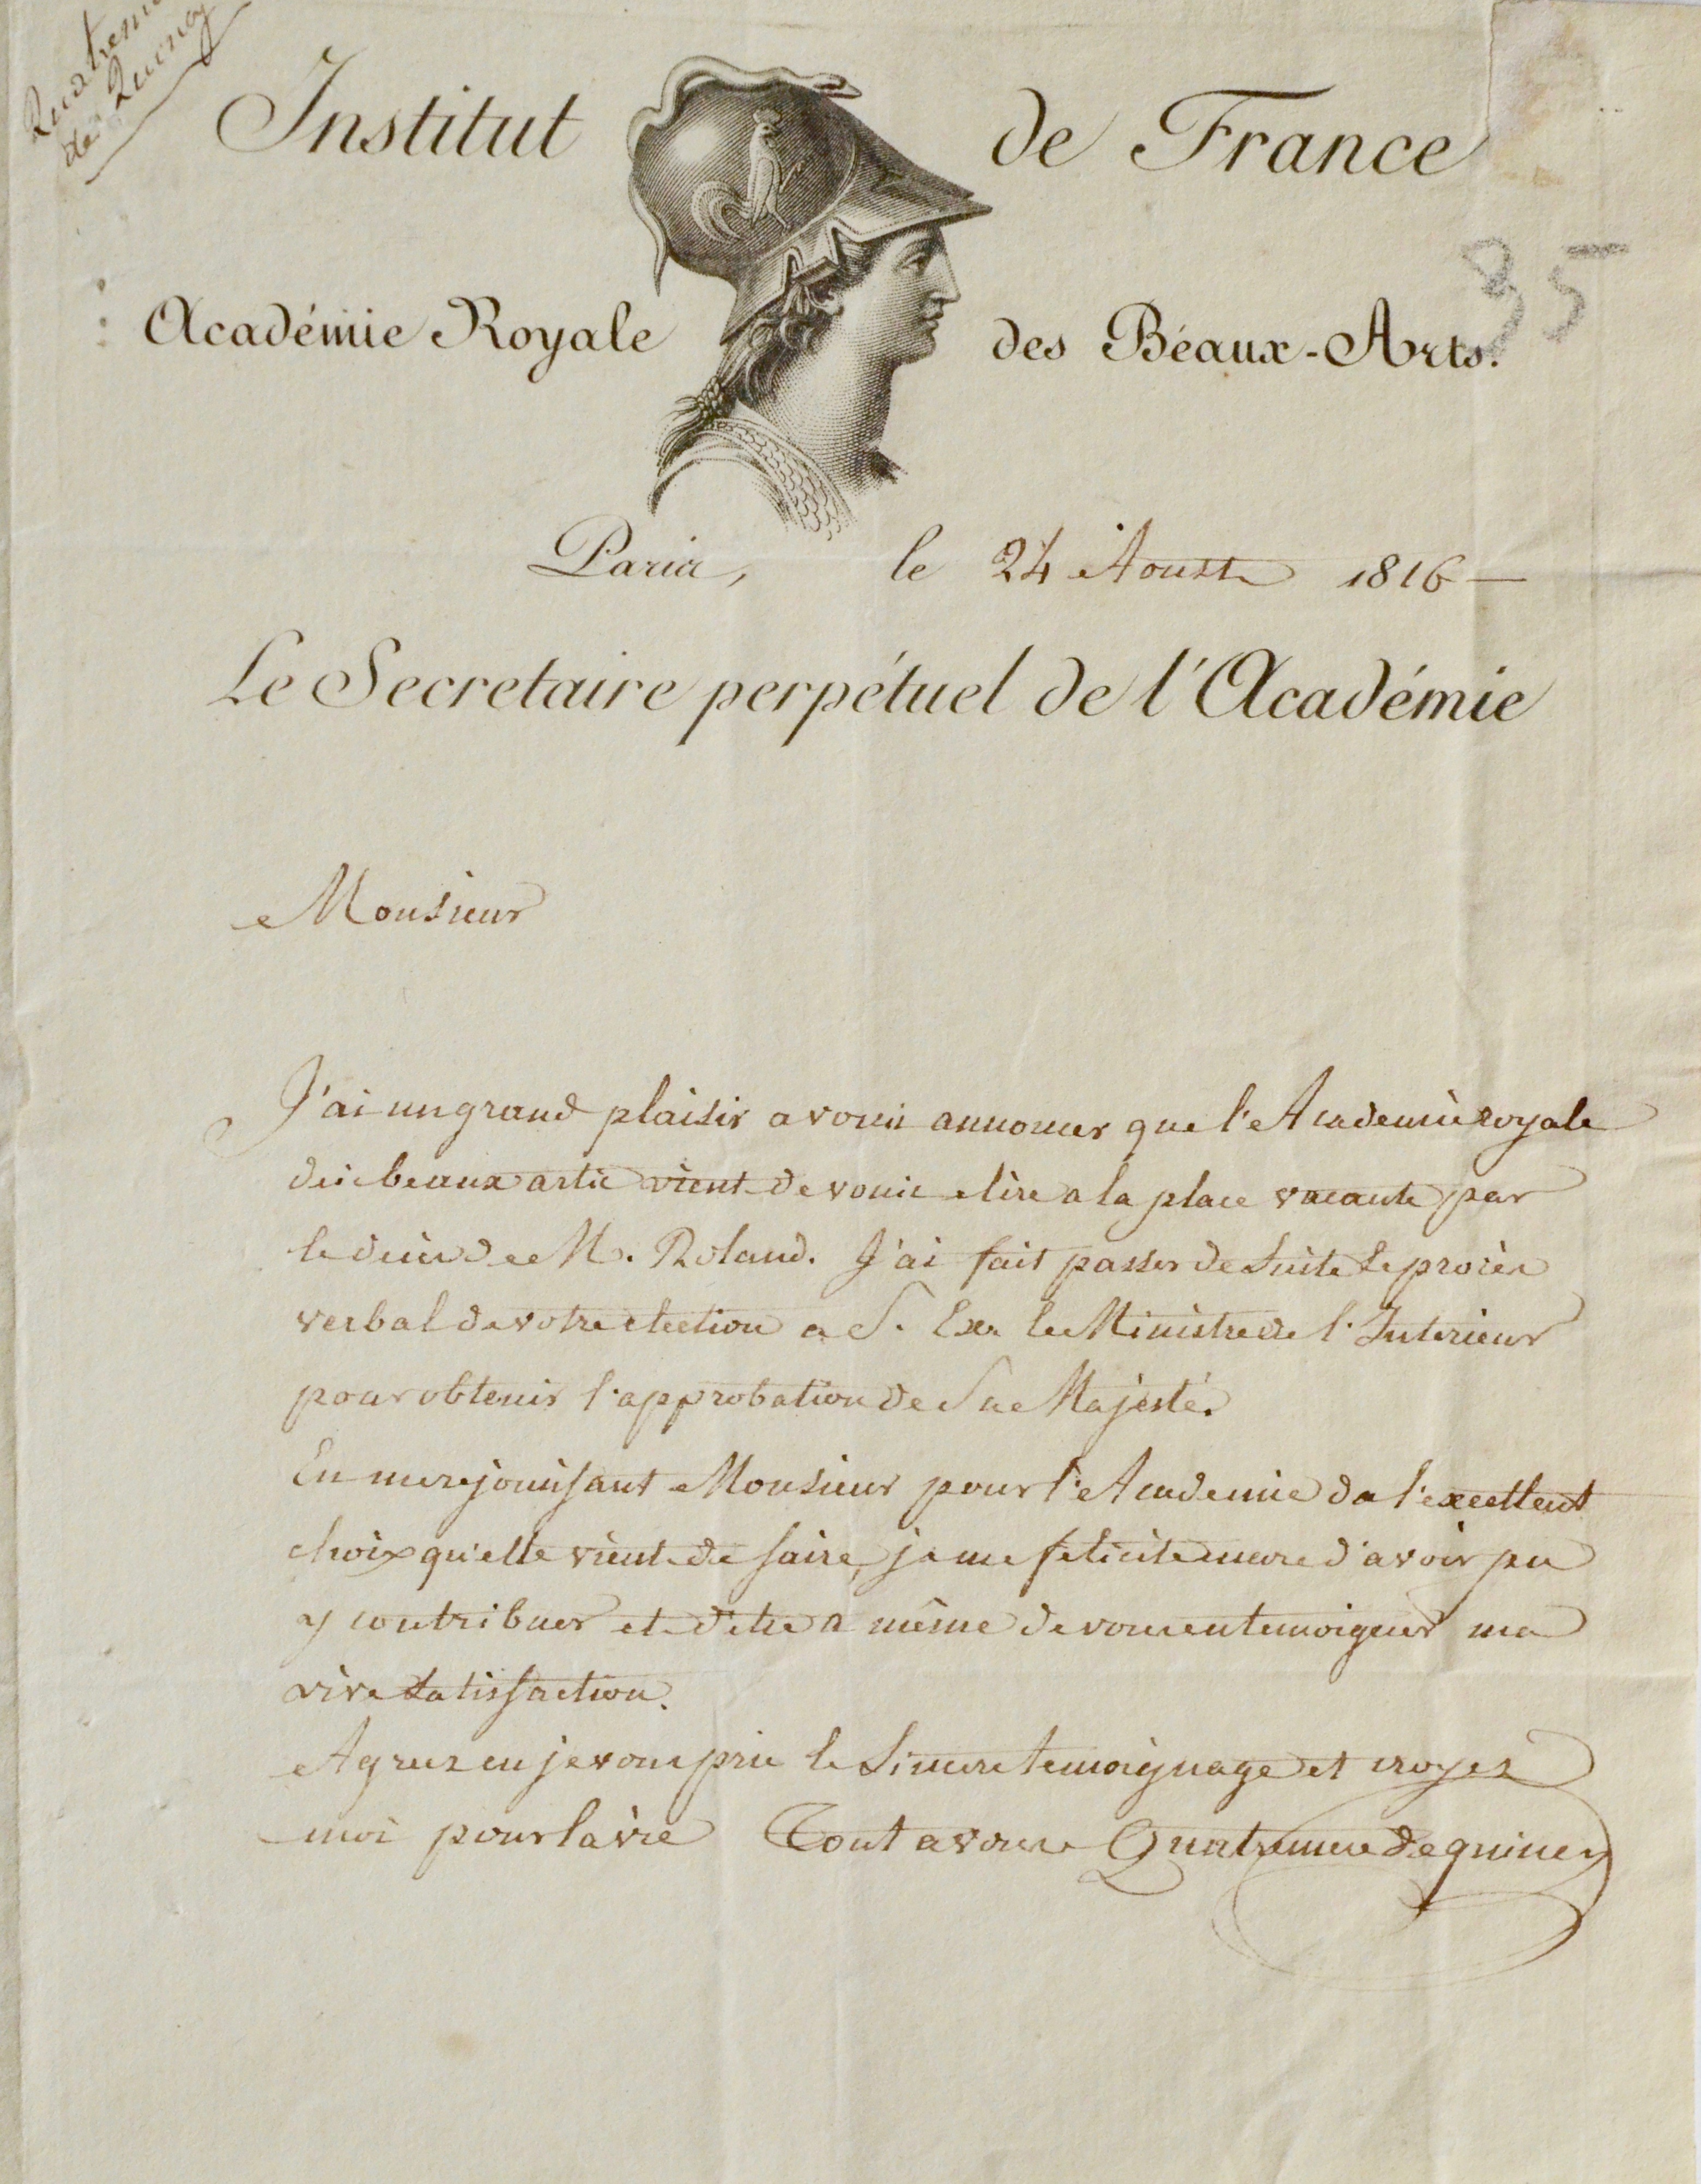 Quatremere
de Quincy
Institut de France
85
Académie Royale des Béaux-Arts.
Paris, le 24 Aoust 1816
Le Secretaire perpétuel de l'Académie
Monsieur
J'ai un grand plaisir a vous annoncer que l'Academie royale
des beaux arts vient de vous elire a la place vacante par
le deces de M. Roland. J'ai fait passer de suite le procès
verbal de votre election a S. Exc le Ministre de l'Interieur
pour obtenir l'approbation de Sa Majesté.
En me rejouissant Monsieur pour l'Academie de l'excellent
choix qu'elle vient de faire, je me felicite encore d'avoir pu
y contribuer et d'etre a même de vous en temoigner ma
vive satisfaction.
Agreez en je vous prie le sincere temoignage et croyez
moi pour la vie Tout a vous Quatremere de quincy